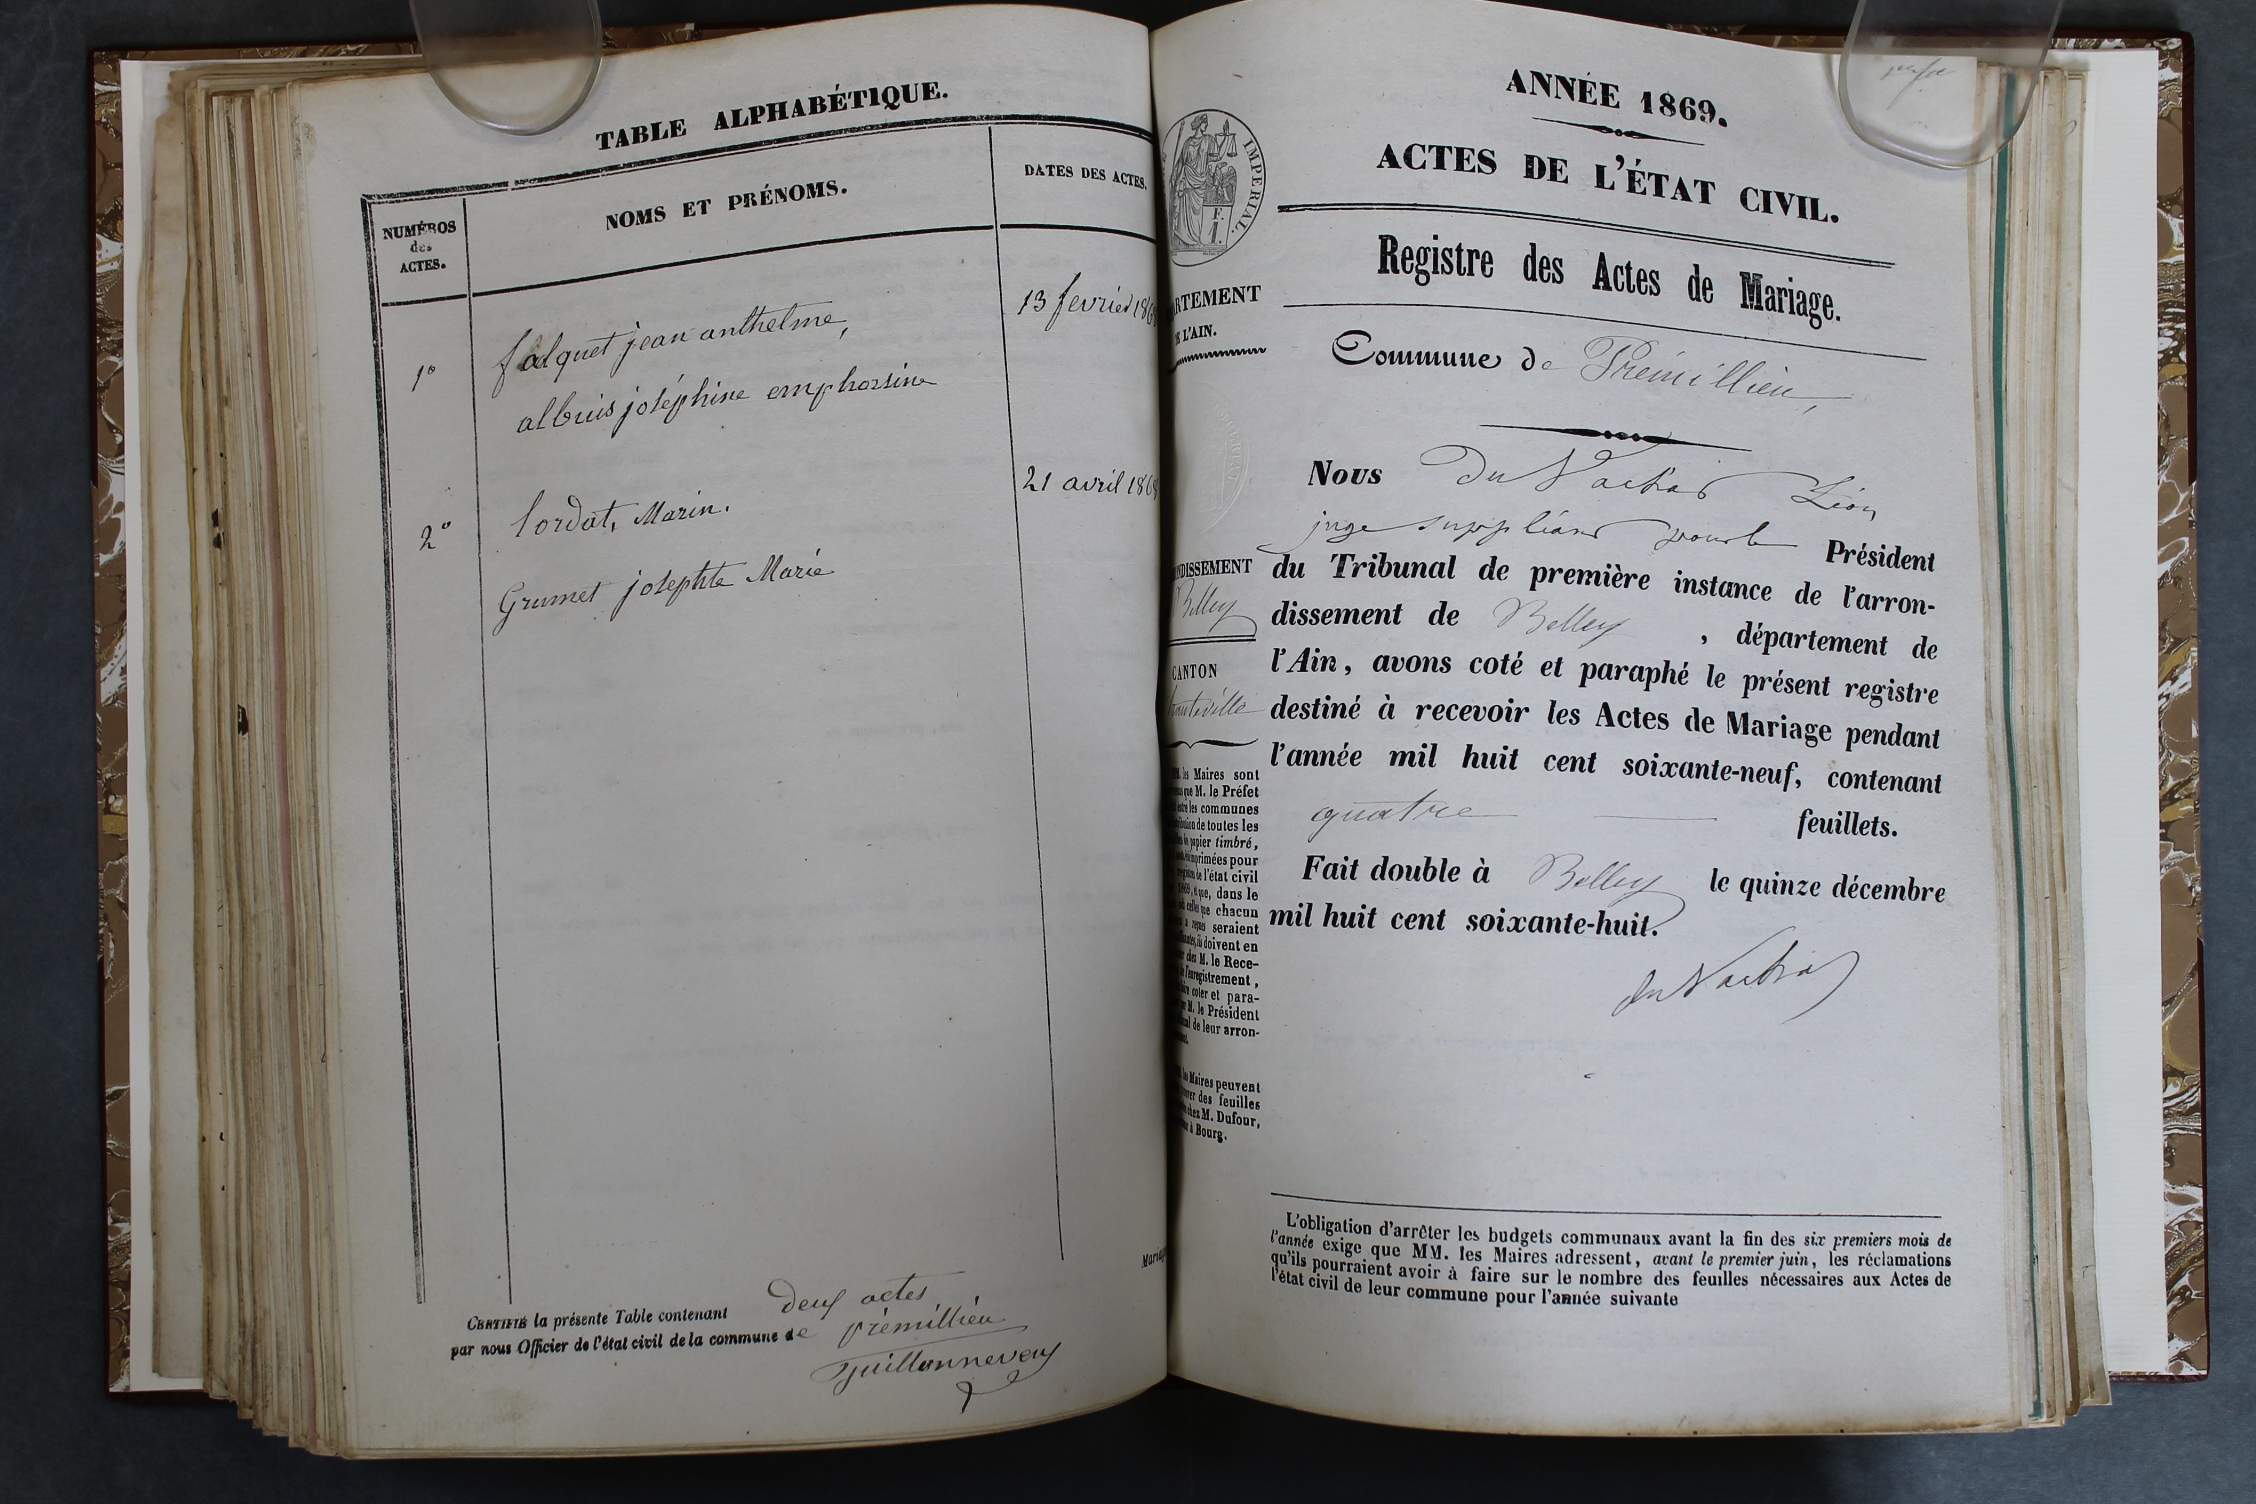 TABLE ALPHABÉTIQUE.
NUMÉROS
des
ACTES.
NOMS ET PRÉNOMS.
DATES DES ACTES.
1º
falquet jean anthelme,
13 fevrier 186
albuis joséphine emphorsine
2º
lordat, Marin.
21 avril 186
Grumet josephte Marie
Mariag
CERTIFIÉ la présente Table contenant deux actes
par nous Officier de l'état civil de la commune de prémillieu
Guillonneveux
ANNÉE 1869.
ACTES DE L'ÉTAT CIVIL.
Registre des Actes de Mariage.
IMPÉRIAL.
F.
1.
ARTEMENT
E L'AIN.
Commune de Prémillieu,
NDISSEMENT
Belley
CANTON
hauteville
Nous Du Vachat Léon
juge suppléant pour le Président
du Tribunal de première instance de l'arron-
dissement de Belley, département de
l'Ain, avons coté et paraphé le présent registre
destiné à recevoir les Actes de Mariage pendant
l'année mil huit cent soixante-neuf, contenant
quatre feuillets.
Fait double à Belley le quinze décembre
mil huit cent soixante-huit.
du Vachat
les Maires sont
que M. le Préfet
les communes
de toutes les
papier timbré,
imprimées pour
de l'état civil
que, dans le
que chacun
seraient
doivent en
M. le Rece-
l'enregistrement,
coter et para-
M. le Président
de leur arron-
Maires peuvent
des feuilles
chez M. Dufour,
à Bourg.
L'obligation d'arrêter les budgets communaux avant la fin des six premiers mois de
l'année exige que MM. les Maires adressent, avant le premier juin, les réclamations
qu'ils pourraient avoir à faire sur le nombre des feuilles nécessaires aux Actes de
l'état civil de leur commune pour l'année suivante